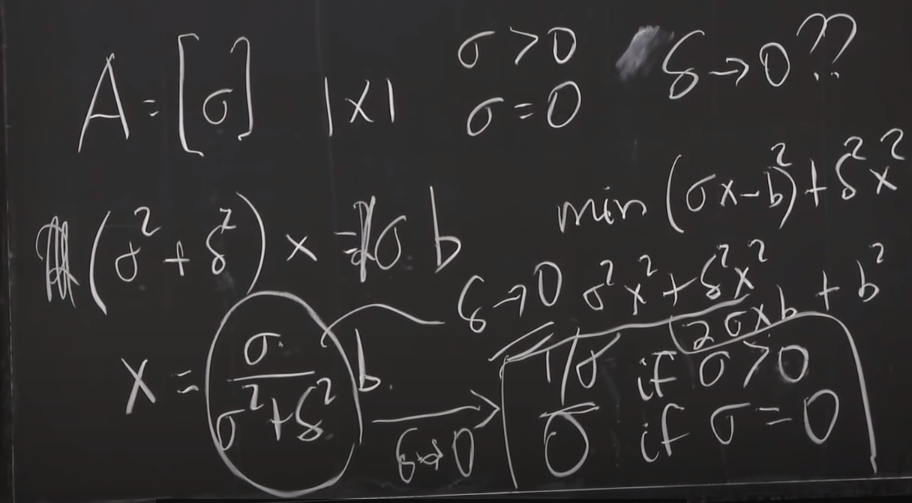 A = [σ] 1×1 σ>0 δ→0??
σ=0
min (σx-b)²+δ²x²
(σ²+δ²) x = σ b
δ→0 σ²x²+δ²x²
2σxb + b²
x = σ/(σ²+δ²) b δ→0 → 1/σ if σ>0
0 if σ=0